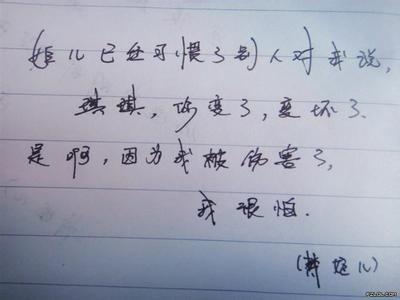 儿已经习惯了别人对我说，
琪琪，你变了，变坏了．
是啊，因为我被伤害了，
我很怕．